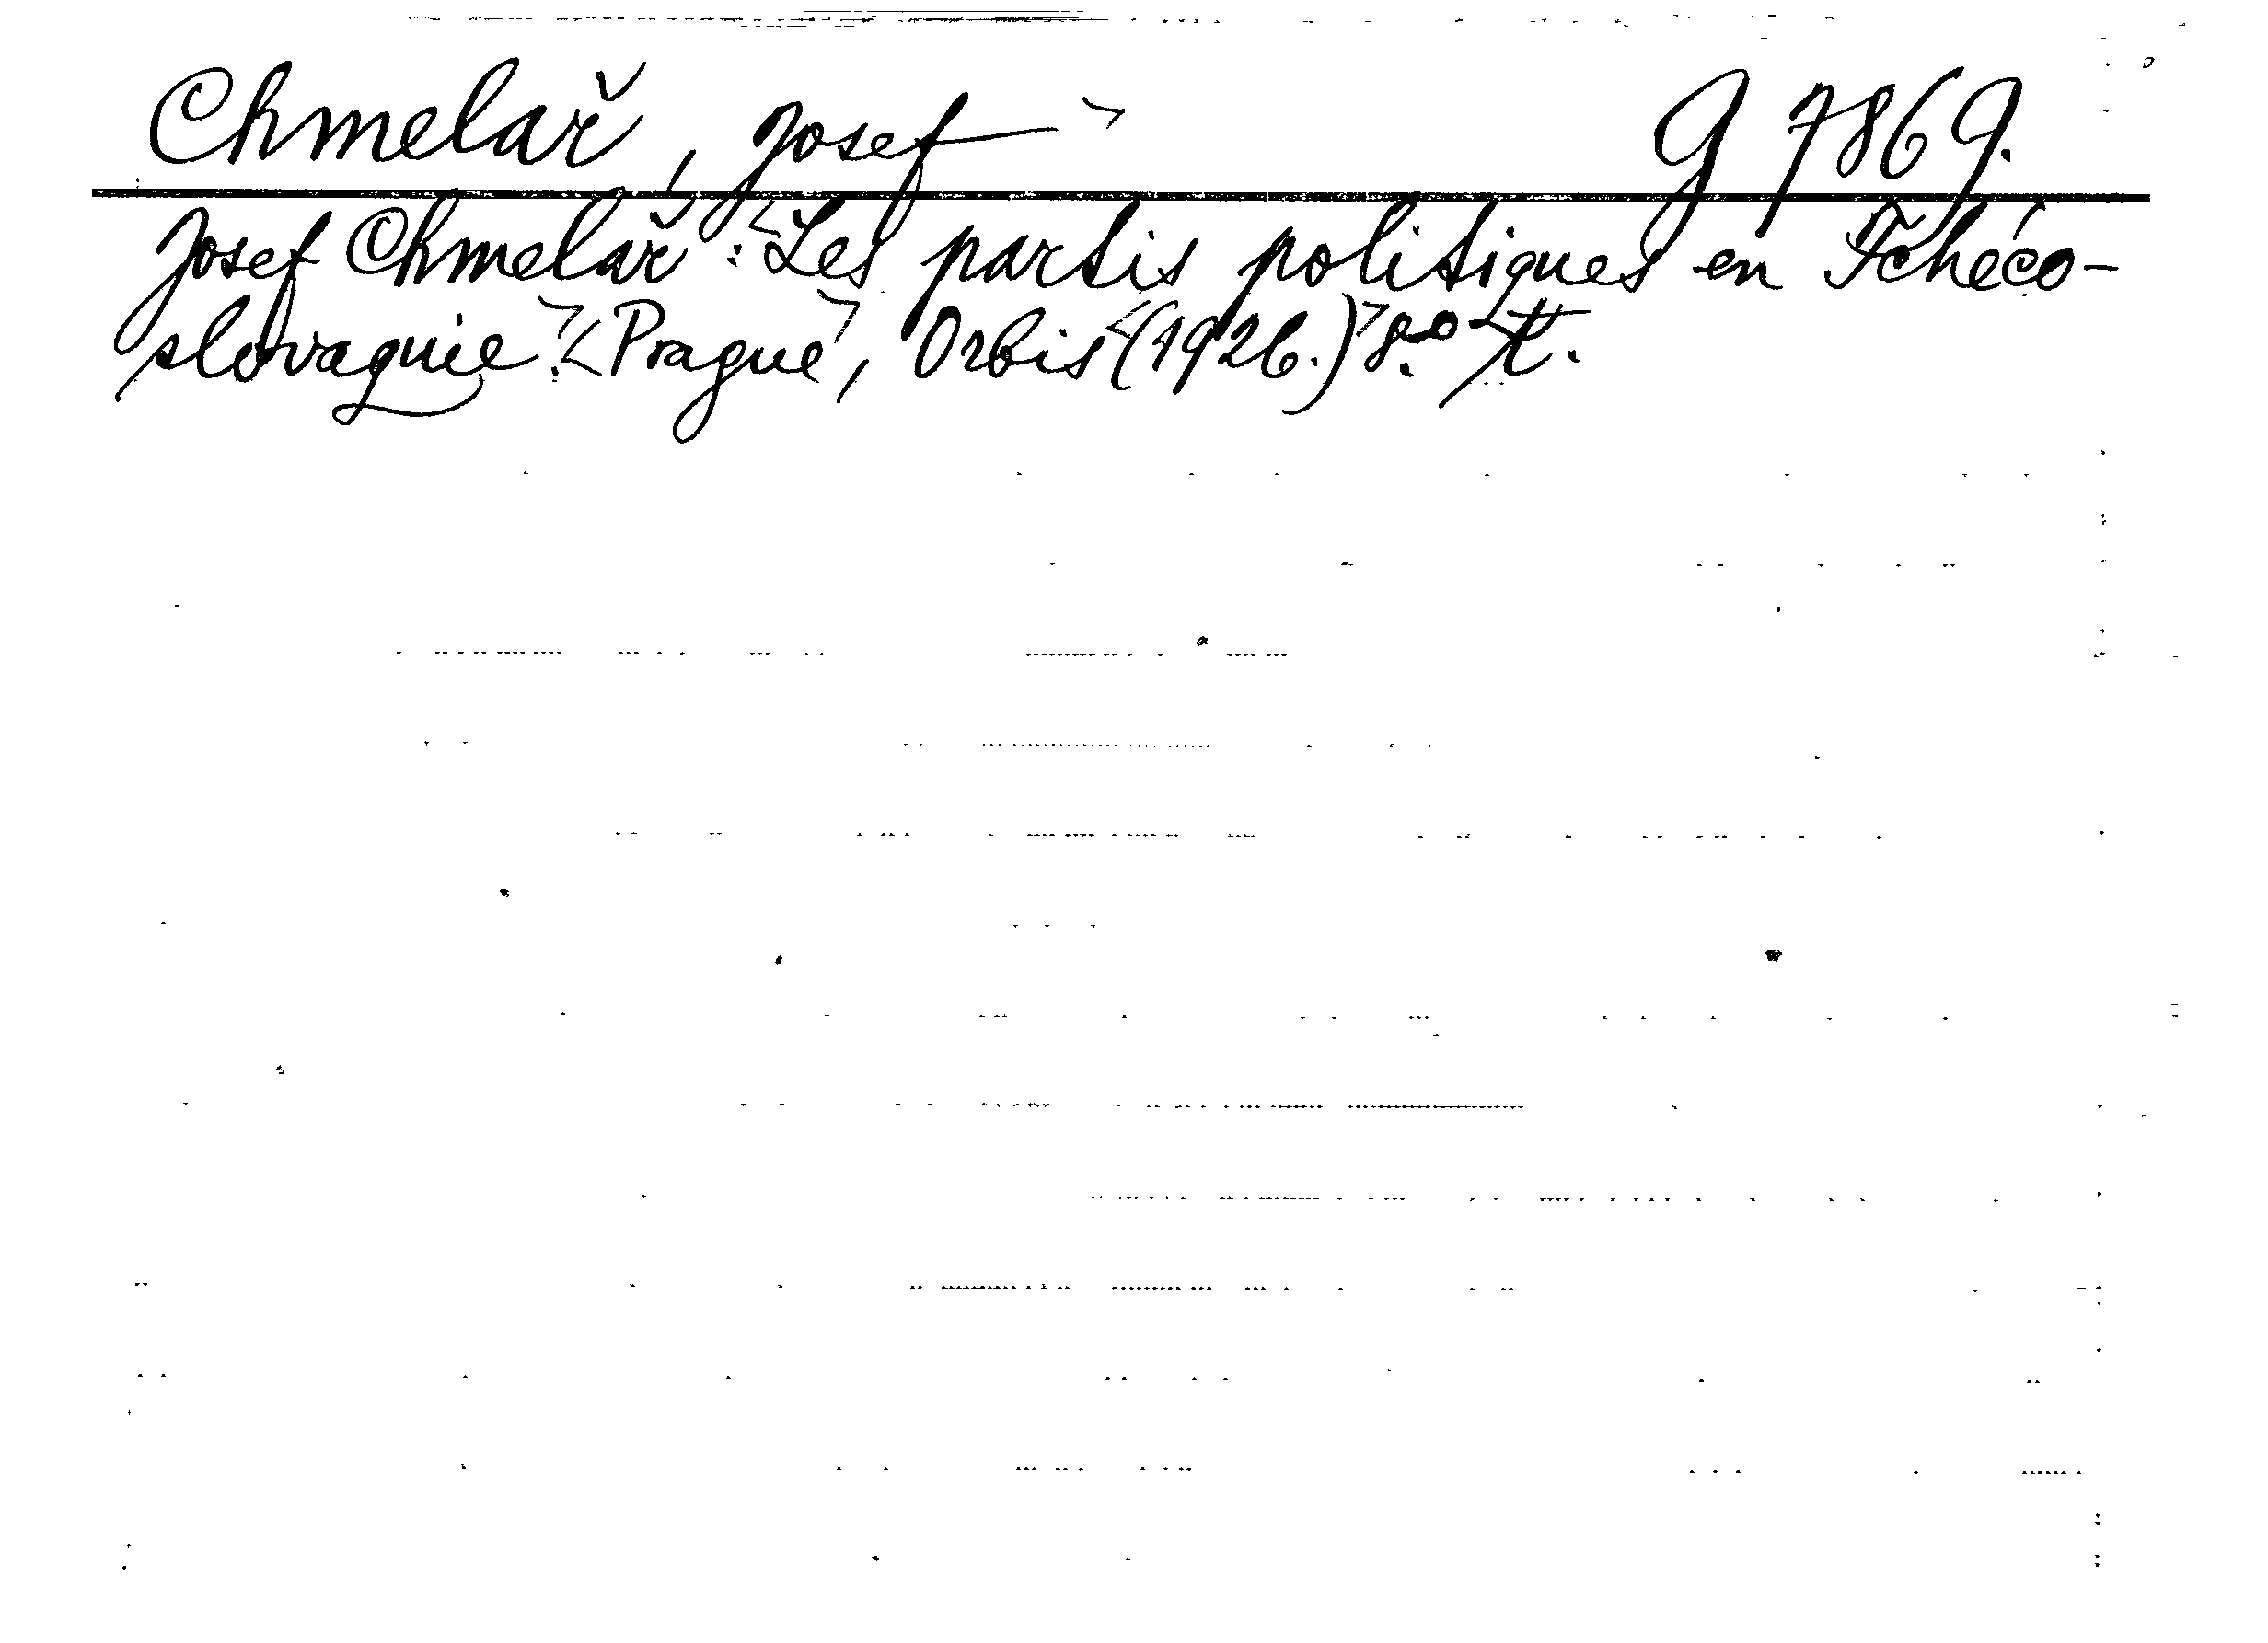 Chmelař, Josef G 7869.
Josef Chmelař: Les partis politiques en Tchéco-
slovaquie. Prague, Orbis (1926.) 8.°